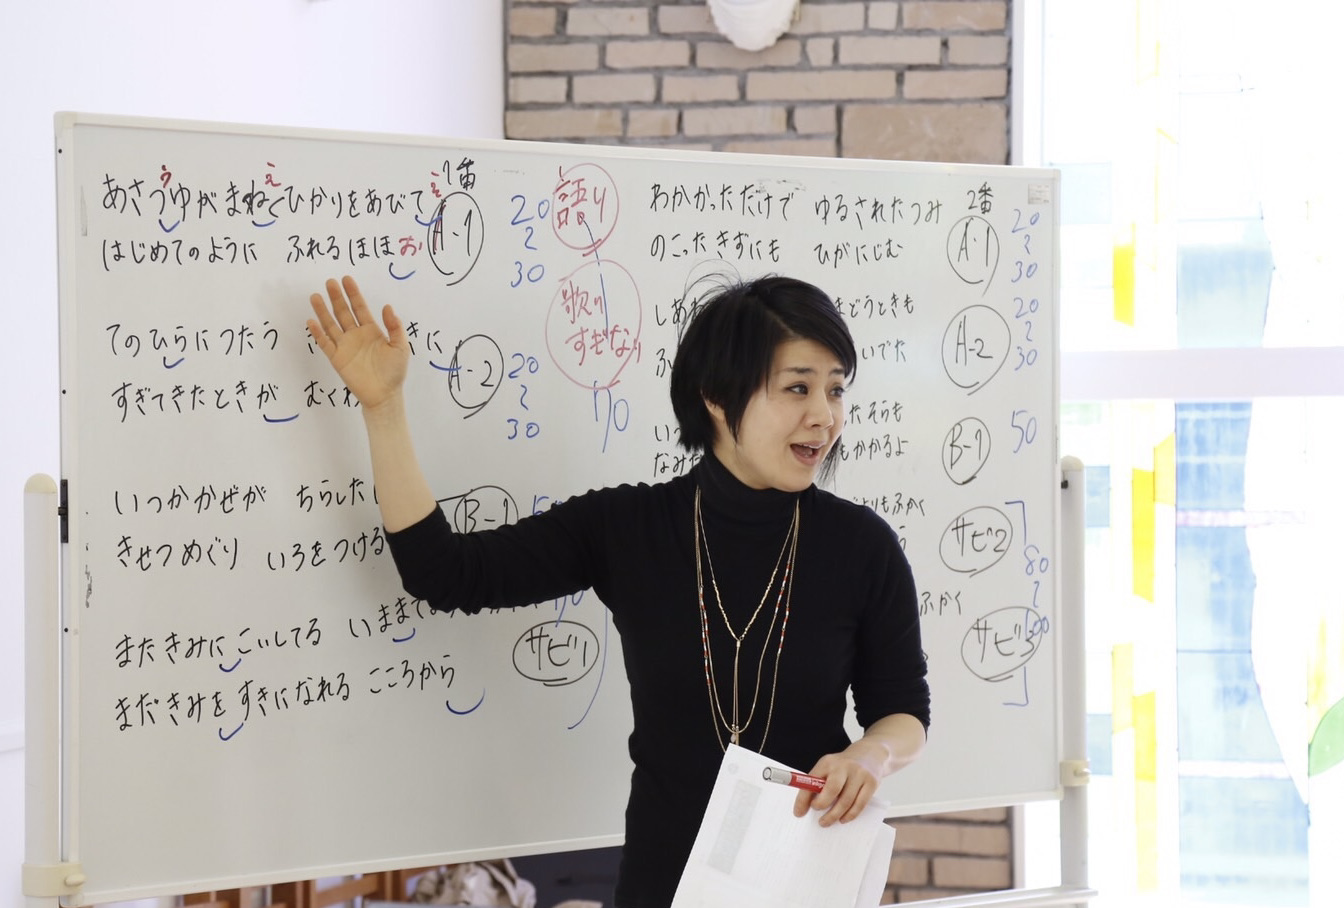 1番
あさつゆがまねくひかりをあびて
う
え
え
A-1
20
2
30
はじめてのように ふれるほほ
お
てのひらにつたう
きに
A-2
20
2
30
すぎてきたときが
いつかかぜが ちらした
B-1
きせつめぐり いろをつける
またきみにこいしてる いままで
サビ1
まだきみをすきになれる こころから
語り
歌い
すぎない
2番
わかかっただけで ゆるされたつみ
のこったきずにも ひがにじむ
A-1
20
2
30
まどうときも
A-2
20
2
30
いでた
たそらも
B-1
50
もかかるよ
よりもふかく
サビ2
80
2
100
ふかく
サビ3